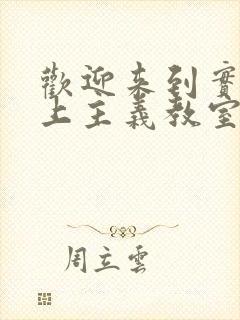 歡迎来到實
上主義教室
周立雲